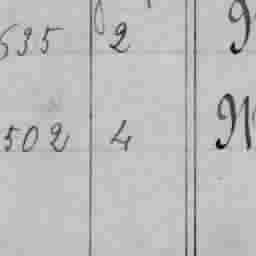 535 2
502 4